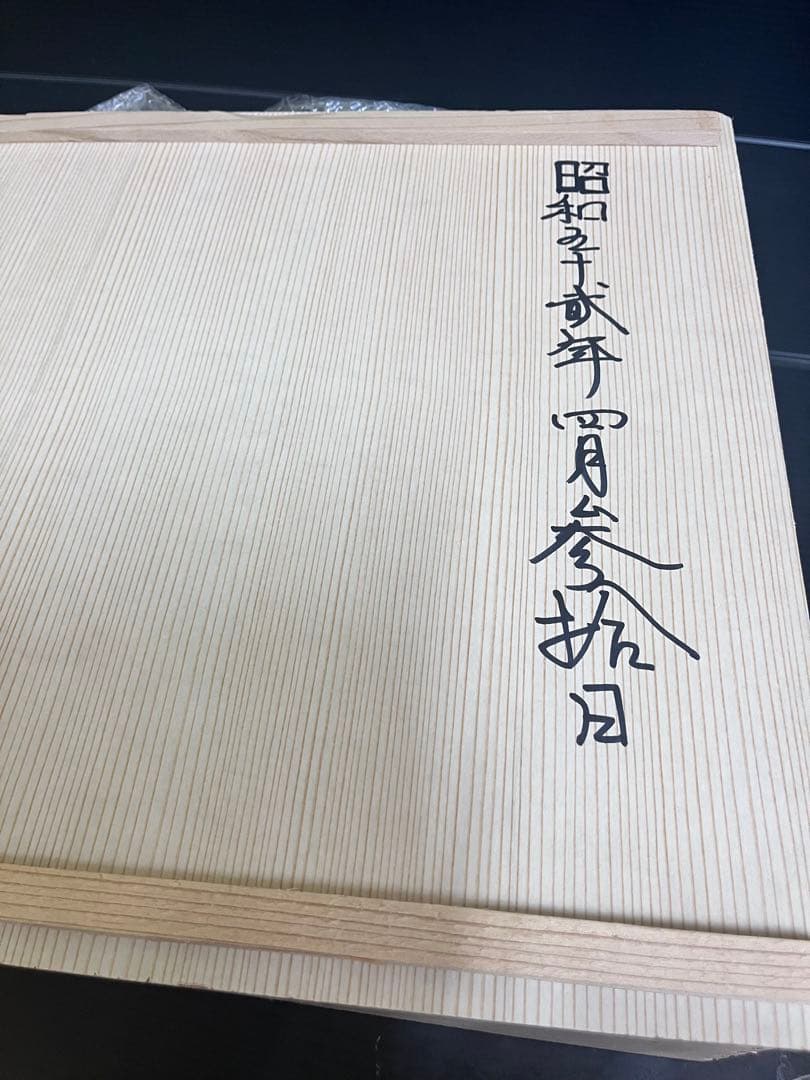 昭和五十貳年四月参拾日